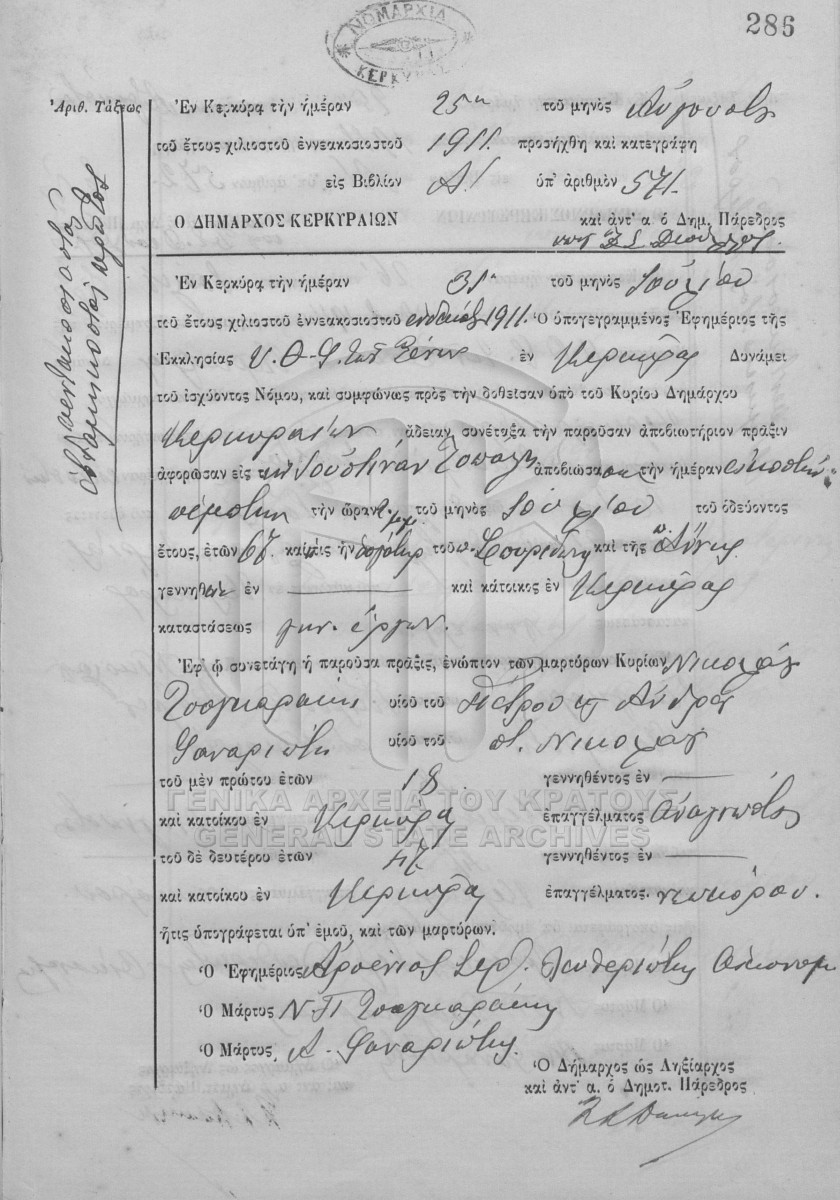 286
ΝΟΜΑΡΧΙΑ
ΚΕΡΚΥΡΑΣ
Ἀριθ. Τάξεως
πεντακοσιοστὸς ἑβδομηκοστὸς πρῶτος
Ἐν Κερκύρᾳ τὴν ἡμέραν 25ην τοῦ μηνὸς Αὐγούστου
τοῦ ἔτους χιλιοστοῦ ἐννεακοσιοστοῦ 1911 προσήχθη καὶ κατεγράφη
εἰς Βιβλίον Α! ὑπ' ἀριθμὸν 571.
Ο ΔΗΜΑΡΧΟΣ ΚΕΡΚΥΡΑΙΩΝ καὶ ἀντ' α. ὁ Δημ. Πάρεδρος
Ἐν Κερκύρᾳ τὴν ἡμέραν 31ην τοῦ μηνὸς Ἰουλίου
τοῦ ἔτους χιλιοστοῦ ἐννεακοσιοστοῦ ἑνδεκάτου 1911. Ὁ ὑπογεγραμμένος Ἐφημέριος τῆς
Ἐκκλησίας Υ. Θ. τῶν Ξένων ἐν Κερκύρας Δυνάμει
τοῦ ἰσχύοντος Νόμου, καὶ συμφώνως πρὸς τὴν δοθεῖσαν ὑπὸ τοῦ Κυρίου Δημάρχου
Κερκυραίων ἄδειαν, συνέταξα τὴν παροῦσαν ἀποβιωτήριον πρᾶξιν
ἀφορῶσαν εἰς τὴν Ἰουστίναν ἀποβιώσασαν τὴν ἡμέραν εἰκοστὴν
πέμπτην τὴν ὥραν τοῦ μηνὸς Ἰουλίου τοῦ ὁδεύοντος
ἔτους, ἐτῶν καὶ τις ἦν θυγάτηρ τοῦ π. Σπυρίδωνος καὶ τῆς π. Ἄννης
γεννηθ ἐν — καὶ κάτοικος ἐν Κερκύρας
καταστάσεως γυν. ἔργων.
Ἐφ' ᾧ συνετάγη ἡ παροῦσα πρᾶξις, ἐνώπιον τῶν μαρτύρων Κυρίων Νικολάου
Τσαγκαράκη υἱοῦ τοῦ Πέτρου κ Ἀνδρέα
Φαναριώτη υἱοῦ τοῦ π. Νικολάου
τοῦ μὲν πρώτου ἐτῶν 18 γεννηθέντος ἐν —
καὶ κατοίκου ἐν Κερκύρᾳ ἐπαγγέλματος Ἀναγνώστου
τοῦ δὲ δευτέρου ἐτῶν γεννηθέντος ἐν —
καὶ κατοίκου ἐν Κερκύρᾳ ἐπαγγέλματος. νεωκόρου.
ἥτις ὑπογράφεται ὑπ' ἐμοῦ, καὶ τῶν μαρτύρων.
Ὁ Ἐφημέριος Ἀρσένιος Οἰκονομ
Ὁ Μάρτυς Ν. Π Τσαγκαράκης
Ὁ Μάρτυς, Α. Φαναριώτης
Ὁ Δήμαρχος ὡς Ληξίαρχος
καὶ ἀντ' α. ὁ Δημοτ. Πάρεδρος
ΓΕΝΙΚΑ ΑΡΧΕΙΑ ΤΟΥ ΚΡΑΤΟΥΣ
GENERAL STATE ARCHIVES